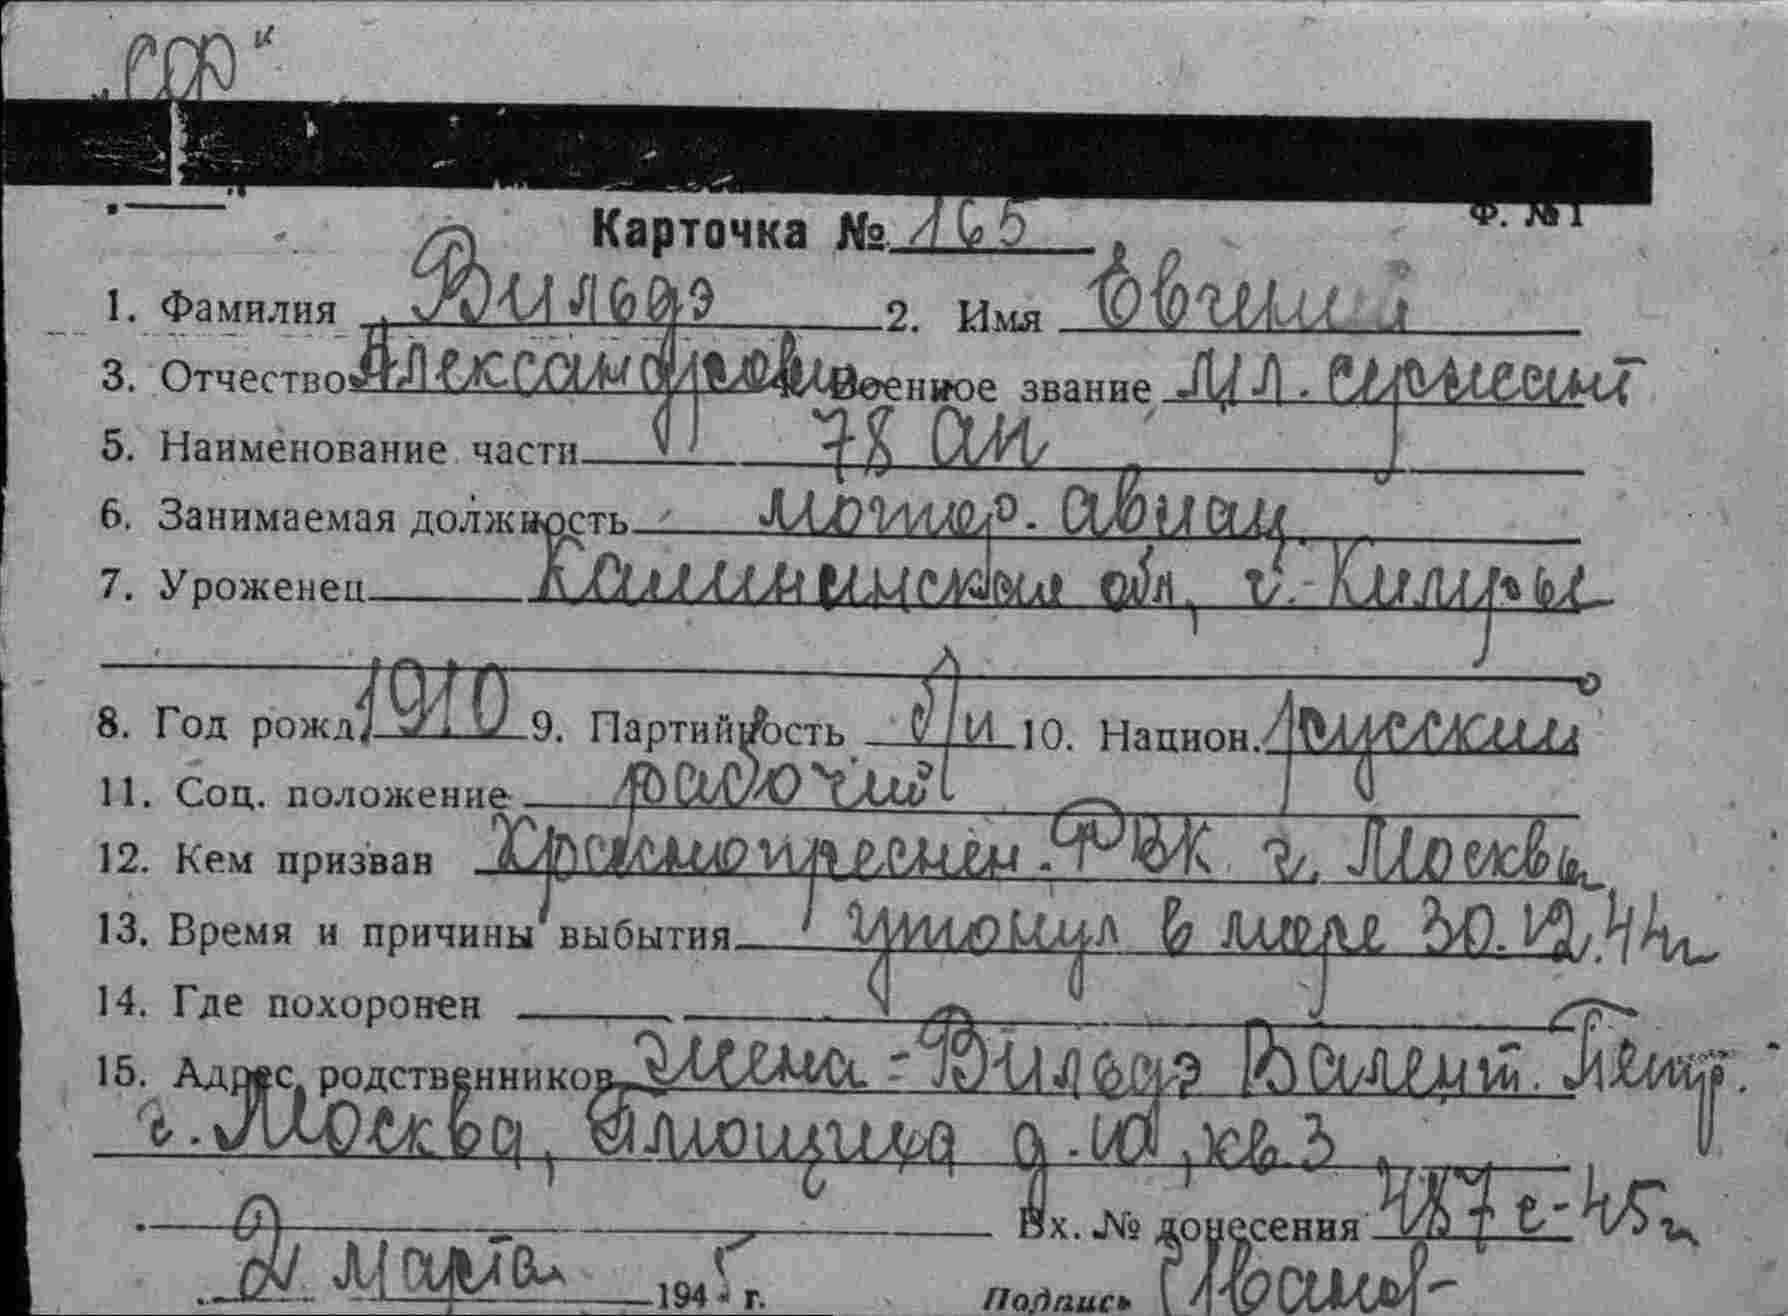 Ф. № 1
Карточка № 165
1. Фамилия Вильдэ 2. Имя Евгений
3. Отчество Александрович Военное звание мл. сержант
5. Наименование части 78 ап
6. Занимаемая должность
7. Уроженец Калининская обл, г. Кимры
8. Год рожд. 1910 9. Партийность 10. Национ. русский
11. Соц. положение рабочий
12. Кем призван Краснопреснен. РВК г. Москвы
13. Время и причины выбытия утонул в море 30.12.44 г
14. Где похоронен
15. Адрес родственников жена - Вильдэ Валент. Петр.
г. Москва, д. 10, кв 3
Вх. № донесения 487 с-45 г
2 марта 1945 г. Подпись